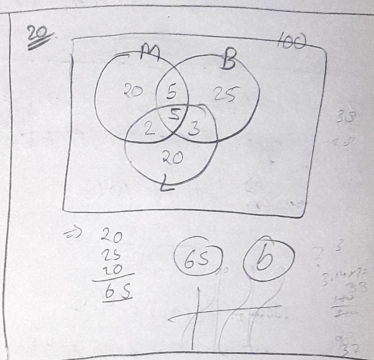 20
100
M B
20 5 25
5
2 3
20
L
⇒ 20
25
20
65
65 b